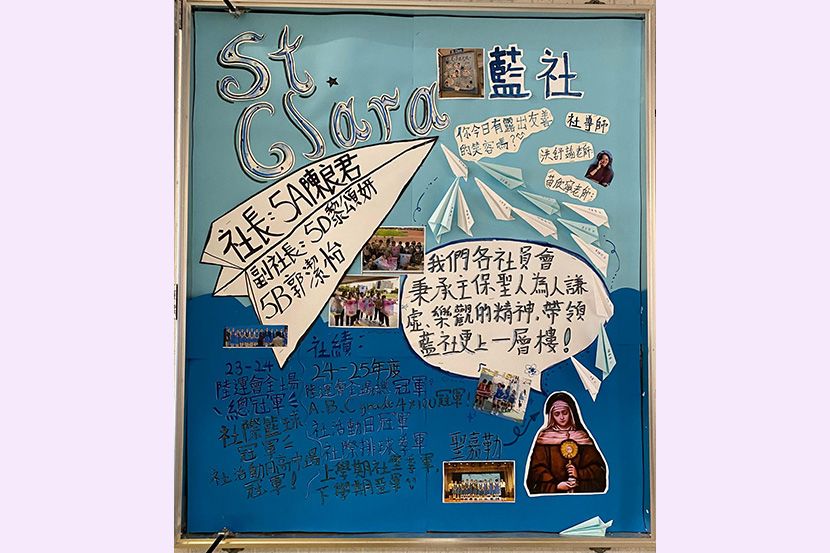 St
Clara
藍社
你今日有露出友善
的笑容嗎?
社導師
洪舒諭老師
苗欣寧老師
社長:5A陳良君
副社長:5D黎頌妍
5B郭潔怡
我們各社員會
秉承主保聖人為人謙
虛、樂觀的精神,帶領
藍社更上一層樓!
社績:
23-24
陸運會全場
總冠軍
社際籃球
冠軍
社活動日高中場
冠軍!
24-25年度
陸運會全場總冠軍
A.B.C grade 4×100冠軍!
社活動日冠軍
社際排球季軍
上學期社
下學期亞軍
聖嘉勒